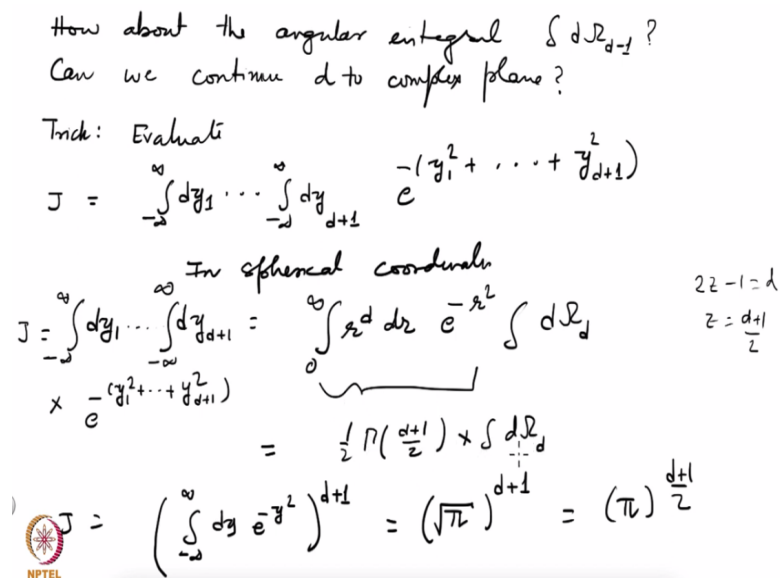 How about the angular integral ∫ dΩ_{d-1} ?
Can we continue d to complex plane ?
Trick : Evaluate
J = ∫_{-∞}^{∞} dy_1 ··· ∫_{-∞}^{∞} dy_{d+1} e^{-(y_1^2 + ···· + y_{d+1}^2)}
In spherical coordinates
J = ∫_{-∞}^{∞} dy_1 ··· ∫_{-∞}^{∞} dy_{d+1} = ∫_0^∞ r^d dr e^{-r^2} ∫ dΩ_d
× e^{-(y_1^2 + ·· + y_{d+1}^2)}
2z - 1 = d
z = \frac{d+1}{2}
= \frac{1}{2} Γ(\frac{d+1}{2}) × ∫ dΩ_d
J = (∫_{-∞}^{∞} dy e^{-y^2})^{d+1} = (√π)^{d+1} = (π)^{\frac{d+1}{2}}
NPTEL